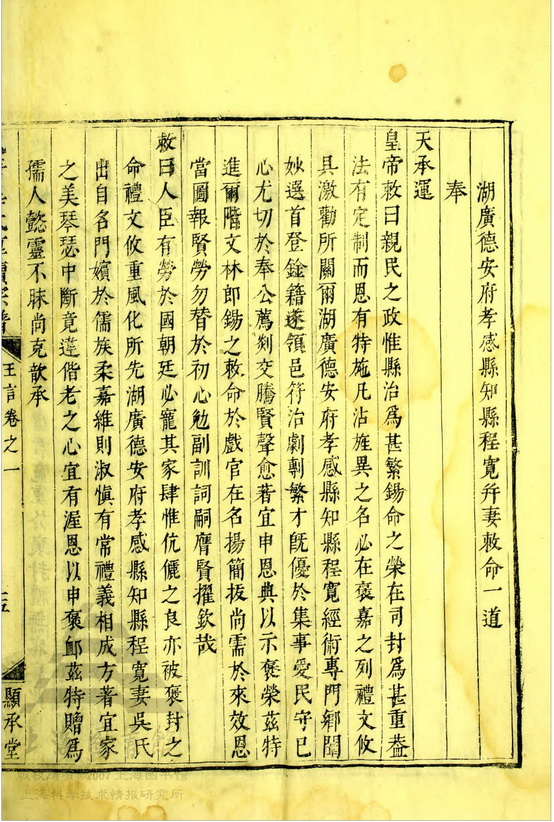 湖廣德安府孝感縣知縣程寬并妻敕命一道
奉
天承運
皇帝敕曰親民之政惟縣治爲甚繁錫命之榮在司封爲甚重葢
法有定制而恩有特施凡沾旌異之名必在褒嘉之列禮文攸
具激勸所關爾湖廣德安府孝感縣知縣程寬經術專門鄉閭
妙選首登銓籍遂領邑符治劇剸繁才旣優於集事愛民守己
心尤切於奉公薦剡交騰賢聲愈著宜申恩典以示褒榮茲特
進爾階文林郎錫之敕命於戲官在名揚簡拔尚需於來效恩
當圖報賢勞勿替於初心勉副訓詞嗣膺賢擢欽哉
敕曰人臣有勞於國朝廷必寵其家肆惟伉儷之良亦被褒封之
命禮文攸重風化所先湖廣德安府孝感縣知縣程寬妻吳氏
出自名門嬪於儒族柔嘉維則淑愼有常禮義相成方著宜家
之美琴瑟中斷竟違偕老之心宜有渥恩以申褒卹茲特贈爲
孺人懿靈不昧尚克歆承
王言卷之一
顯承堂
上海科学技术情报研究所